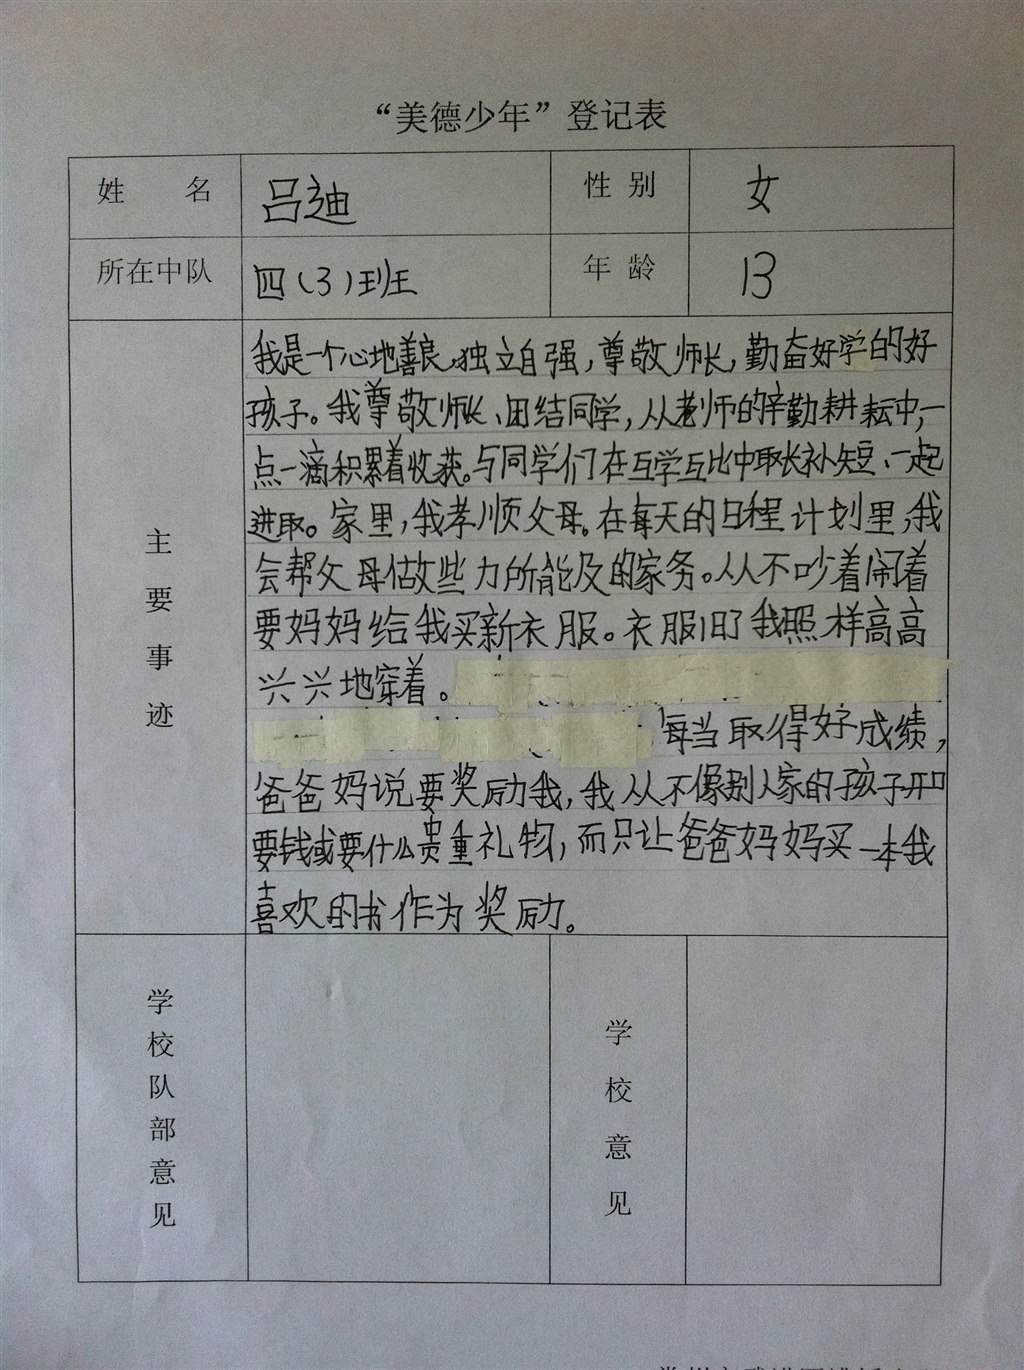 “美德少年”登记表
姓 名 吕迪 性 别 女
所在中队 四(3)班 年 龄 13
主要事迹
我是一个心地善良、独立自强,尊敬师长,勤奋好学的好
孩子。我尊敬师长、团结同学,从老师的辛勤耕耘中,一
点一滴积累着收获。与同学们在互学互比中取长补短、一起
进取。家里,我孝顺父母。在每天的日程计划里,我
会帮父母做些力所能及的家务。从从不吵着闹着
要妈妈给我买新衣服。衣服旧了我照样高高
兴兴地穿着。
每当取得好成绩,
爸爸妈说要奖励我,我从不像别人家的孩子开口
要钱或要什么贵重礼物,而只让爸爸妈妈买一本我
喜欢的书作为奖励。
学校队部意见
学校意见